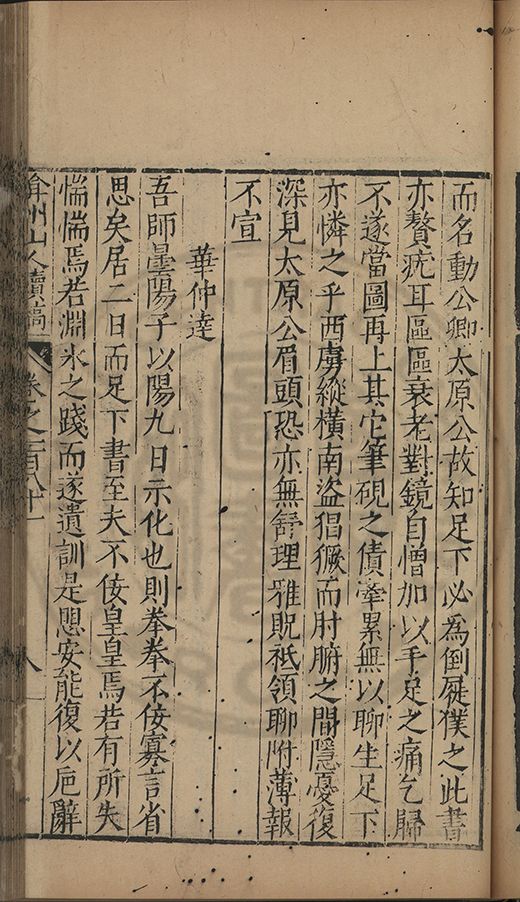 而名動公卿太原公故知足下必為倒屣僕之此書
亦贅疣耳區區衰老對鏡自憎加以手足之痛乞歸
不遂當圖再上其它筆硯之債牽累無以聊生足下
亦憐之乎西虜縱橫南盜猖獗而肘腑之間隱憂復
深見太原公眉頭恐亦無舒理雅貺祗領聊附薄報
不宣
華仲達
吾師曇陽子以陽九日示化也則拳拳不佞寡言省
思矣居二日而足下書至夫不佞皇皇焉若有所失
惴惴焉若淵氷之踐而遂遺訓是愳安能復以巵辭
弇州山人續稿 卷之一百八十一 八